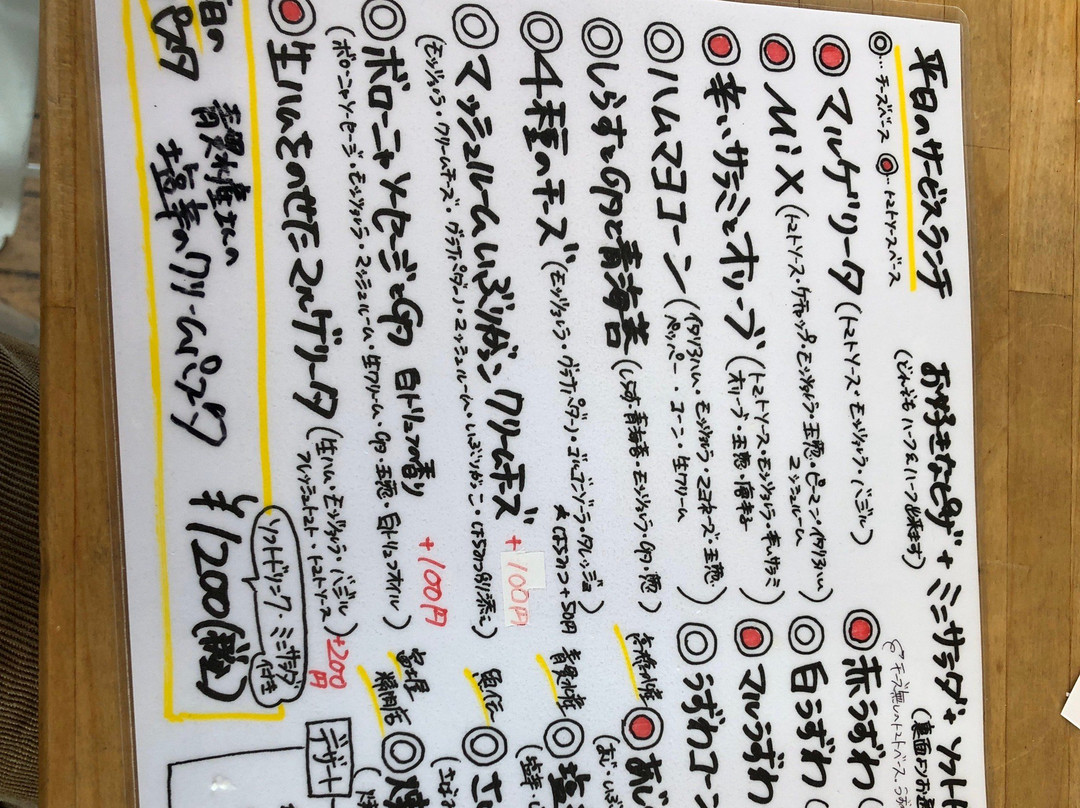 平日のサービスランチ
お好きなピザ + ミニサラダ + ソフト
◎…チーズベース ◉…トマトソースベース
(どれでもハーフ&ハーフ出来ます)
◉マルゲリータ(トマトソース・モッツァレラ・バジル)
◉MIX(トマトソース・ケチャップ・モッツァレラ・玉葱・ピーマン・イタリアハム)
マッシュルーム
◉辛いサラミとオリーブ(トマトソース・モッツァレラ・辛いサラミ)
オリーブ・玉葱・唐辛子
◎ハムマヨコーン(イタリアハム・モッツァレラ・マヨネーズ・玉葱)
ペッパー・コーン・生クリーム
◎しらすとGPと青海苔(しらす・青海苔・モッツァレラ・GP・葱)
◎4種のチーズ(モッツァレラ・グラナパダーノ・ゴルゴンゾーラ・タレッジョ)
はちみつ+50円
◎マッシュルームいぶりがっこ クリームチーズ +100円
(モッツァレラ・クリームチーズ・グラナパダーノ・マッシュルーム・いぶりがっこ・はちみつ別添え)
◎ボローニャソーセージとGP 白トリュフの香り +100円
(ボローニャソーセージ・モッツァレラ・マッシュルーム・生クリーム・GP・玉葱・白トリュフオイル)
◉生ハムをのせたマルゲリータ(生ハム・モッツァレラ・バジル)+200円
フレッシュトマト・トマトソース
◉赤うずわ
チーズ無し トマトベース
◎白うずわ
◉マルうずわ
◎うずわコーン
高橋水産
◉あじ
青貫水産
◎塩
魚伝
◎さ
富士屋
精肉店
◎
日の
青貫水産さんの
塩辛のクリームパスタ
¥1200(税込)
ソフトドリンク・ミニサラダ
付き
デザート